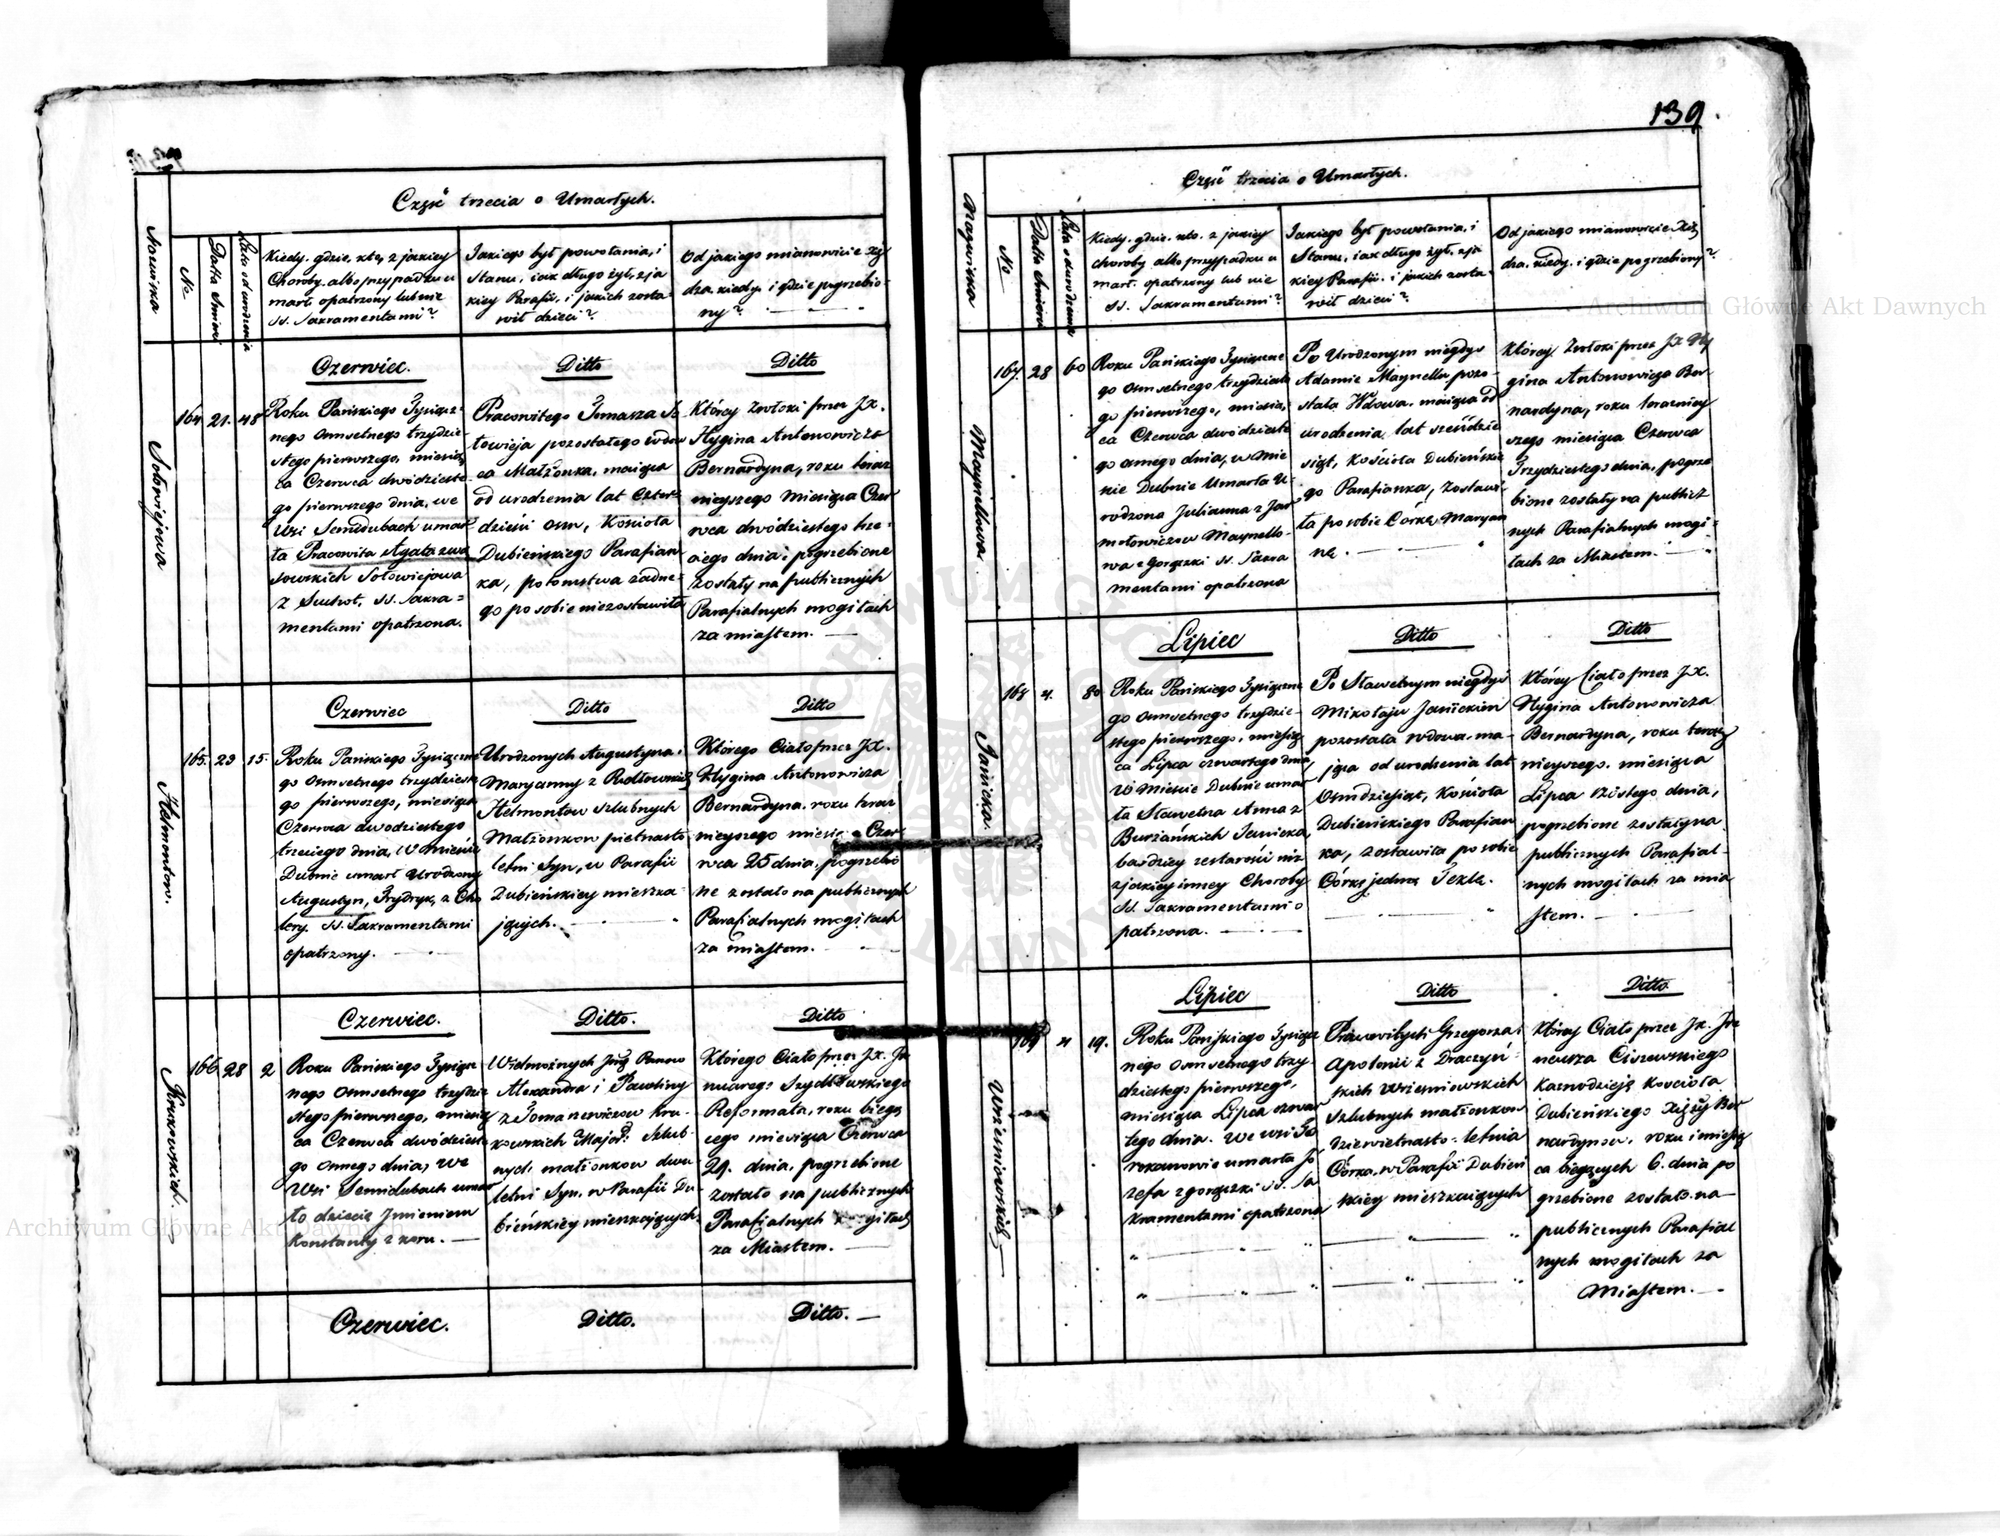 Część trzecia o Umarłych.
Nazwiska
No
Datta Śmierci
Lata od urodzenia
Kiedy, gdzie, kto, z jakiey
Choroby, albo przypadku u
marł opatrzony lub nie
SS. Sakramentami?
Jakiego był powołania, i
Stanu, iak długo żył, z ja
kiey Parafii, i jakich zosta
wił dzieci?
Od jakiego mianowicie Xię
dza, kiedy, i gdzie pogrzebio
ny?
Sołowiejowa
164. 21. 48
Czerwiec.
Roku Pańskiego Tysiącz
nego Osmsetnego trzydzie-
stego pierwszego, miesią
ca Czerwca dwódzieste
go pierwszego dnia, we
Wsi Semidubach umar
ła Pracowita Agata
sowskich Sołowiejowa
z Suchot, SS. Sakra=
mentami opatrzona.
Ditto
Pracowitego Tomasza So
łowieja pozostałego wdow
ca Małżonka, maiąca
od urodzenia lat czter
dzieści osm, Kościoła
Dubieńskiego Parafian
ka, potomstwa żadne=
go po sobie niezostawiła
Ditto
Którey zwłoki przez JX.
Hygina Antonowicza
Bernardyna, roku teraz
nieyszego miesiąca Czer
wca dwódziestego trze-
ciego dnia, pogrzebione
zostały na publicznych
Parafialnych mogiłach
za miastem.
Helmontow.
165. 23 15.
Czerwiec
Roku Pańskiego Tysiączne
go Osmsetnego trzydzieste
go pierwszego, miesiąca
Czerwca dwodziestego
trzeciego dnia, W mieście
Dubnie umarł Urodzony
Augustyn, Frydryk, z Cho
lery SS. Sakramentami
opatrzony.
Ditto
Urodzonych Augustyna i
Maryanny z Rudkowskich
Helmontow szlubnych
Małżonkow pietnasto
letni Syn, w Parafii
Dubieńskiey mieszka-
jących.
Ditto
Którego Ciało przez JX.
Hygina Antonowicza
Bernardyna. roku teraz
nieyszego miesią Czer
wca 25 dnia, pogrzebio
ne zostało na publicznych
Parafialnych mogiłach
za miastem.
Krukowskich.
166 28 2
Czerwiec.
Roku Pańskiego Tysiącz
nego Osmsetnego trzydzie
stego pierwszego, miesią
ca Czerwca dwódzieste
go Osmego dnia, we
Wsi Semidubach umar
ło dziecię Jmieniem
Konstanty z koru.
Ditto.
Wielmożnych Panow
Alexandra i Pawliny
z Tomaszewiczow Kru-
kowskich Szlub-
nych małżonkow dwu
letni Syn, w Parafii Du-
bieńskiey mieszkających
Ditto
Którego Ciało przez JX. Ja
nuarego Szydłowskiego
Reformata, roku bieżą
cego miesiąca Czerwca
29. dnia, pogrzebione
zostało na publicznych
Parafialnych mogiłach
za Miastem.
Czerwiec.
Ditto.
Ditto.
139
Część trzecia o Umarłych.
Nazwiska
No
Datta Śmierci
Lata od urodzenia
Kiedy, gdzie, kto, z jakiey
choroby albo przypadku u
marł, opatrzony lub nie
SS. Sakramentami?
Jakiego był powołania, i
Stanu, iak długo żył, z ja
kiey Parafii, i jakich zosta-
wił dzieci?
Od jakiego mianowicie Xię
dza, kiedy, i gdzie pogrzebiony?
Maynellowa.
167. 28 60
Roku Pańskiego Tysiączne
go Osmsetnego trzydzieste
go pierwszego, miesią
ca Czerwca dwódzieste
go osmego dnia, w mie
ście Dubnie Umarła U-
rodzona Julianna z Jar
mołowiczow Maynello-
wa z Gorączki SS. Sakra
mentami opatrzona
Po Urodzonym niegdyś
Adamie Maynellu pozo-
stała Wdowa, maiąca od
urodzenia, lat sześćdzie
siąt, Kościoła Dubieńskie
go Parafianka, zostawi-
ła po sobie Córkę Maryan
nę.
Którey Zwłoki przez JX Hy
gina Antonowicza Ber
nardyna, roku terazniey
szego miesiąca Czerwca
Trzydziestego dnia, pogrze
bione zostały na publicz
nych Parafialnych mogi=
łach za Miastem.
Janicka.
168 4. 80
Lipiec
Roku Pańskiego Tysiączne
go Osmsetnego trzydzie-
stego pierwszego, miesią
ca Lipca czwartego dnia,
W mieście Dubnie umar
ła Sławetna Anna z
Burzańskich Janicka,
bardziey ze starości niż
z jakiey inney Choroby
SS. Sakramentami o
patrzona.
Ditto
Po Sławetnym niegdyś
Mikołaju Janickim
pozostała wdowa, ma-
jąca od urodzenia lat
Osmdziesiąt, Kościoła
Dubieńskiego Parafian
ka, zostawiła po sobie
Córkę jedną Teklę.
Ditto
Którey Ciało przez JX.
Hygina Antonowicza
Bernardyna, roku teraz
nieyszego, miesiąca
Lipca dnia,
pogrzebione zostało na
publicznych Parafial-
nych mogiłach za mia
stem.
Wrzesniowskich
169 4 19.
Lipiec
Roku Pańskiego Tysiącz
nego Osmsetnego trzy-
dziestego pierwszego,
miesiąca Lipca czwar
tego dnia. We wsi So
rokanowie umarła Jó
zefa z gorączki SS. Sa
kramentami opatrzona
Ditto
Pracowitych Grzegorza i
Apolonii z Draczyń-
skich Wrzesniowskich
Szlubnych małżonkow
Dziewietnasto-letnia
Córka, w Parafii Dubień
skiey mieszkaiących
Ditto
Którey Ciało przez Jx. Jre
neusza Ciszewskiego
Kaznodzieję Kościoła
Dubieńskiego Xięży Ber
nardynow, roku i miesią
ca bieżących 6. dnia po
grzebione zostało na
publicznych Parafial
nych mogiłach za
Miastem.
Archiwum Główne Akt Dawnych
Archiwum Główne Akt Dawnych